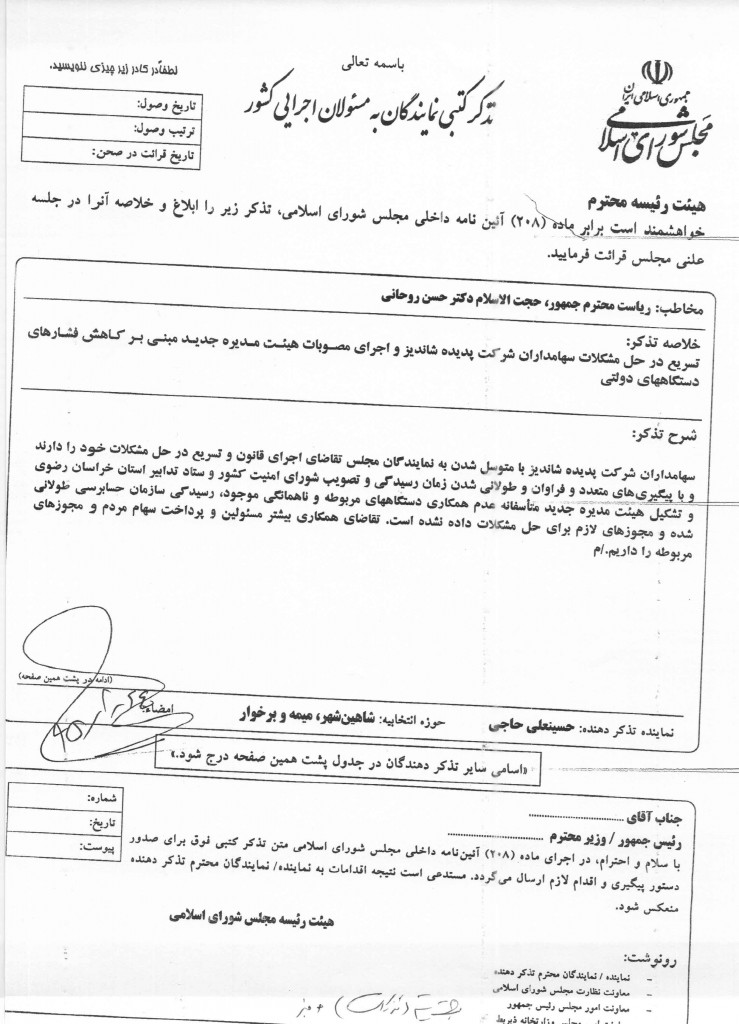 باسمه تعالی
جمهوری اسلامی ایران
مجلس شورای اسلامی
تذکر کتبی نمایندگان به مسئولان اجرایی کشور
لطفاً در کادر زیر چیزی ننویسید.
تاریخ وصول:
ترتیب وصول:
تاریخ قرائت در صحن:
هیئت رئیسه محترم
خواهشمند است برابر ماده (۲۰۸) آئین نامه داخلی مجلس شورای اسلامی، تذکر زیر را ابلاغ و خلاصه آنرا در جلسه
علنی مجلس قرائت فرمایید.
مخاطب: ریاست محترم جمهور، حجت الاسلام دکتر حسن روحانی
خلاصه تذکر:
تسریع در حل مشکلات سهامداران شرکت پدیده شاندیز و اجرای مصوبات هیئت مدیره جدید مبنی بر کاهش فشارهای
دستگاههای دولتی
شرح تذکر:
سهامداران شرکت پدیده شاندیز با متوسل شدن به نمایندگان مجلس تقاضای اجرای قانون و تسریع در حل مشکلات خود را دارند
و با پیگیری‌های متعدد و فراوان و طولانی شدن زمان رسیدگی و تصویب شورای امنیت کشور و ستاد تدابیر استان خراسان رضوی
و تشکیل هیئت مدیره جدید متأسفانه عدم همکاری دستگاههای مربوطه و ناهماتگی موجود، رسیدگی سازمان حسابرسی طولانی
شده و مجوزهای لازم برای حل مشکلات داده نشده است. تقاضای همکاری بیشتر مسئولین و پرداخت سهام مردم و مجوزهای
مربوطه را داریم./م
(ادامه در پشت همین صفحه)
نماینده تذکر دهنده: حسینعلی حاجی حوزه انتخابیه: شاهین‌شهر، میمه و برخوار امضاء
«اسامی سایر تذکر دهندگان در جدول پشت همین صفحه درج شود.»
شماره:
تاریخ:
پیوست:
جناب آقای ............................
رئیس جمهور / وزیر محترم ............................
با سلام و احترام، در اجرای ماده (۲۰۸) آئین‌نامه داخلی مجلس شورای اسلامی متن تذکر کتبی فوق برای صدور
دستور پیگیری و اقدام لازم ارسال می‌گردد. مستدعی است نتیجه اقدامات به نماینده/ نمایندگان محترم تذکر دهنده
منعکس شود.
هیئت رئیسه مجلس شورای اسلامی
رونوشت:
– نماینده / نمایندگان محترم تذکر دهنده
– معاونت نظارت مجلس شورای اسلامی
– معاونت امور مجلس رئیس جمهور
مجلس وزارتخانه ذیربط